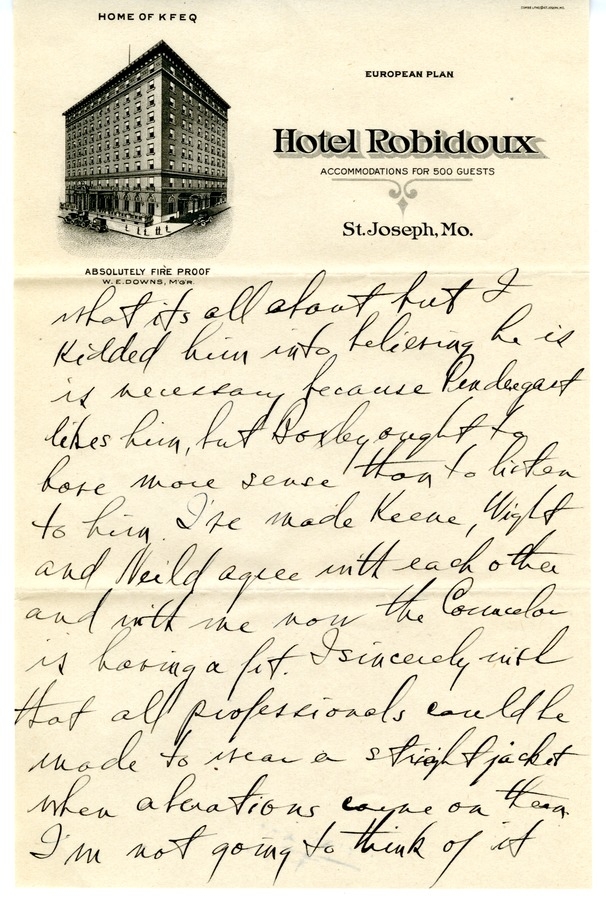 HOME OF KFEQ
EUROPEAN PLAN
Hotel Robidoux
ACCOMMODATIONS FOR 500 GUESTS
St. Joseph, Mo.
ABSOLUTELY FIRE PROOF
W. E. DOWNS, M'G'R.
what its all about but I
kidded him into believing he is
is necessary because Pendergast
likes him, but ought to
have more sense than to listen
to him. I've made Keene, Wight
and Neild agree with each other
and with me now the Councelor
is having a fit. I sincerely wish
that all professionals could be
made to wear a straight jacket
when come on them.
I'm not going to think of it